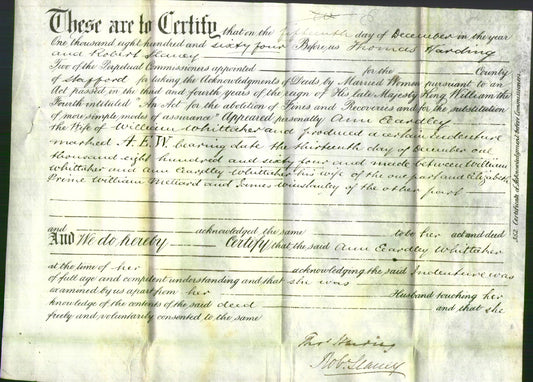 These are to Certify that on the day of December in the year
One thousand eight hundred and sixty four Before us Thomas Harding
and Robert Slaney
Two of the Perpetual Commissioners appointed for the County
of Stafford for taking the Acknowledgments of Deeds by Married Women pursuant to an
Act passed in the third and fourth years of the reign of His late Majesty King William the
Fourth intituled "An Act for the abolition of Fines and Recoveries and for the substitution
of more simple modes of assurance" Appeared personally Ann Eardley
the Wife of William Whittaker and produced a certain Indenture
marked A.E.W. bearing date the thirteenth day of December one
thousand eight hundred and sixty four and made between William
Whittaker and Ann Eardley Whittaker his wife of the one part and Elizabeth
Prime William Millward and James of the other part
and acknowledged the same to be her act and deed
And We do hereby Certify that the said Ann Eardley Whittaker
at the time of her acknowledging the said Indenture was
of full age and competent understanding and that she was
examined by us apart from her Husband touching her
knowledge of the contents of the said deed and that she
freely and voluntarily consented to the same
Thos Harding
Rob. Slaney
552. Certificate of Acknowledgment before Commissioners.